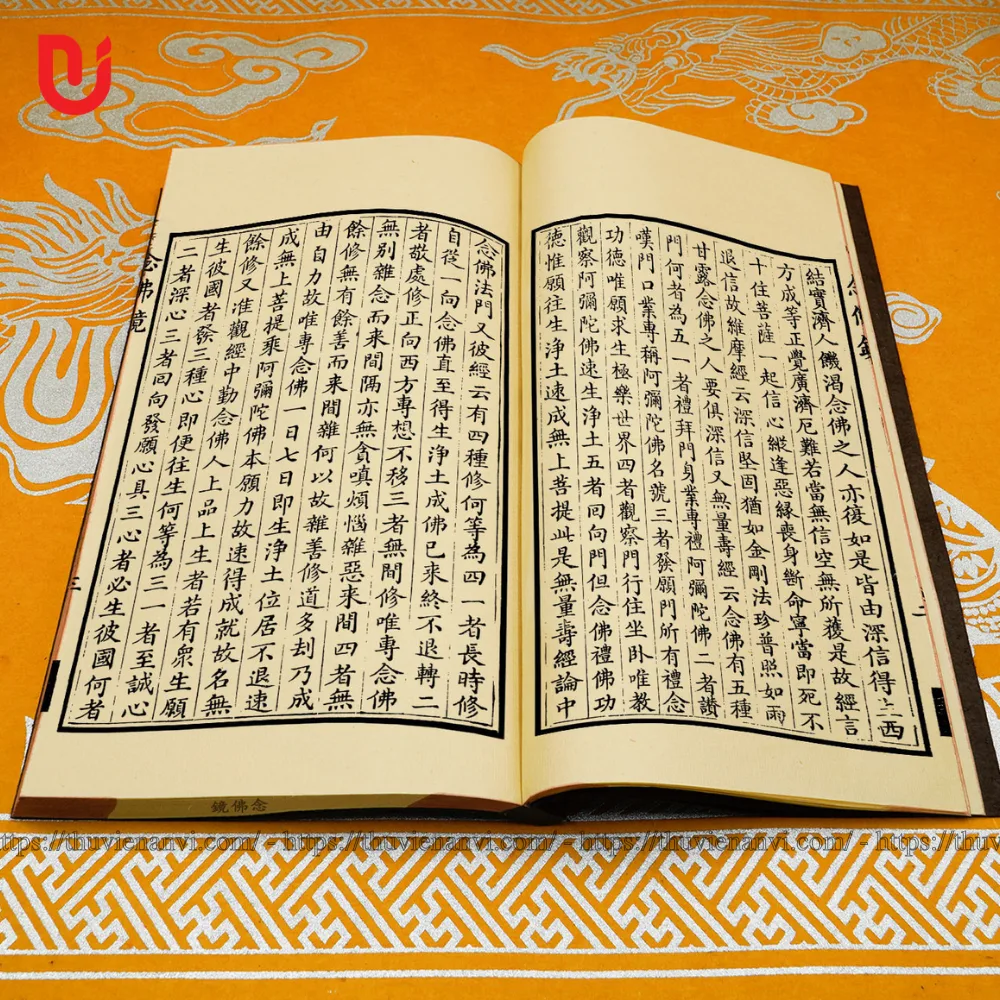 結實濟人饑渴念佛之人亦復如是皆由深信得上西
方成等正覺廣濟厄難若當無信空無所獲是故經言
十住菩薩一起信心縱逢惡緣喪身斷命寧當即死不
退信故維摩經云深信堅固猶如金剛法珍普照如雨
甘露念佛之人要俱深信又無量壽經云念佛有五種
門何者為五一者禮拜門身業專禮阿彌陀佛二者讚
嘆門口業專稱阿彌陀佛名號三者發願門所有禮念
功德唯願求生極樂世界四者觀察門行住坐臥唯教
觀察阿彌陀佛速生淨土五者回向門但念佛禮佛功
德惟願往生淨土速成無上菩提此是無量壽經論中
念佛法門又彼經云有四種修何等為四一者長時修
自從一向念佛直至得生淨土成佛已來終不退轉二
者敬處修正向西方專想不移三者無間修唯專念佛
無別雜念而來間隔亦無貪嗔煩惱雜惡來間四者無
餘修無有餘善而來間雜何以故雜善修道多刦乃成
由自力故唯專念佛一日七日即生淨土位居不退速
成無上菩提乘阿彌陀佛本願力故速得成就故名無
餘修又准觀經中勤念佛人上品上生者若有眾生願
生彼國者發三種心即便往生何等為三一者至誠心
二者深心三者回向發願心具三心者必生彼國何者
念佛鏡
三
念佛鏡
https://thuvienanvi.com/ - https://thuvienanvi.com/ - https://thuvienanvi.com/ - https://thuvienanvi.com